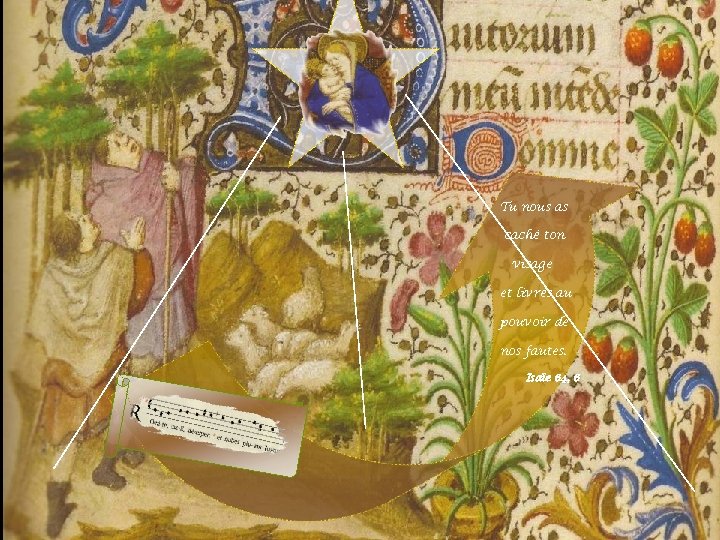 mitorum
Domine
Tu nous as
caché ton
visage
et livrés au
pouvoir de
nos fautes.
Isaïe 64, 6
R
Rorá-te, cæ-li, désuper: * et nubes plu-ant